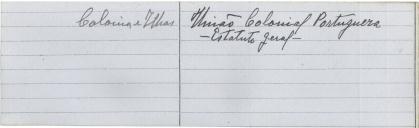 Colonia e Ilhas
União Colonial Portugueza
- Estatuto geral -